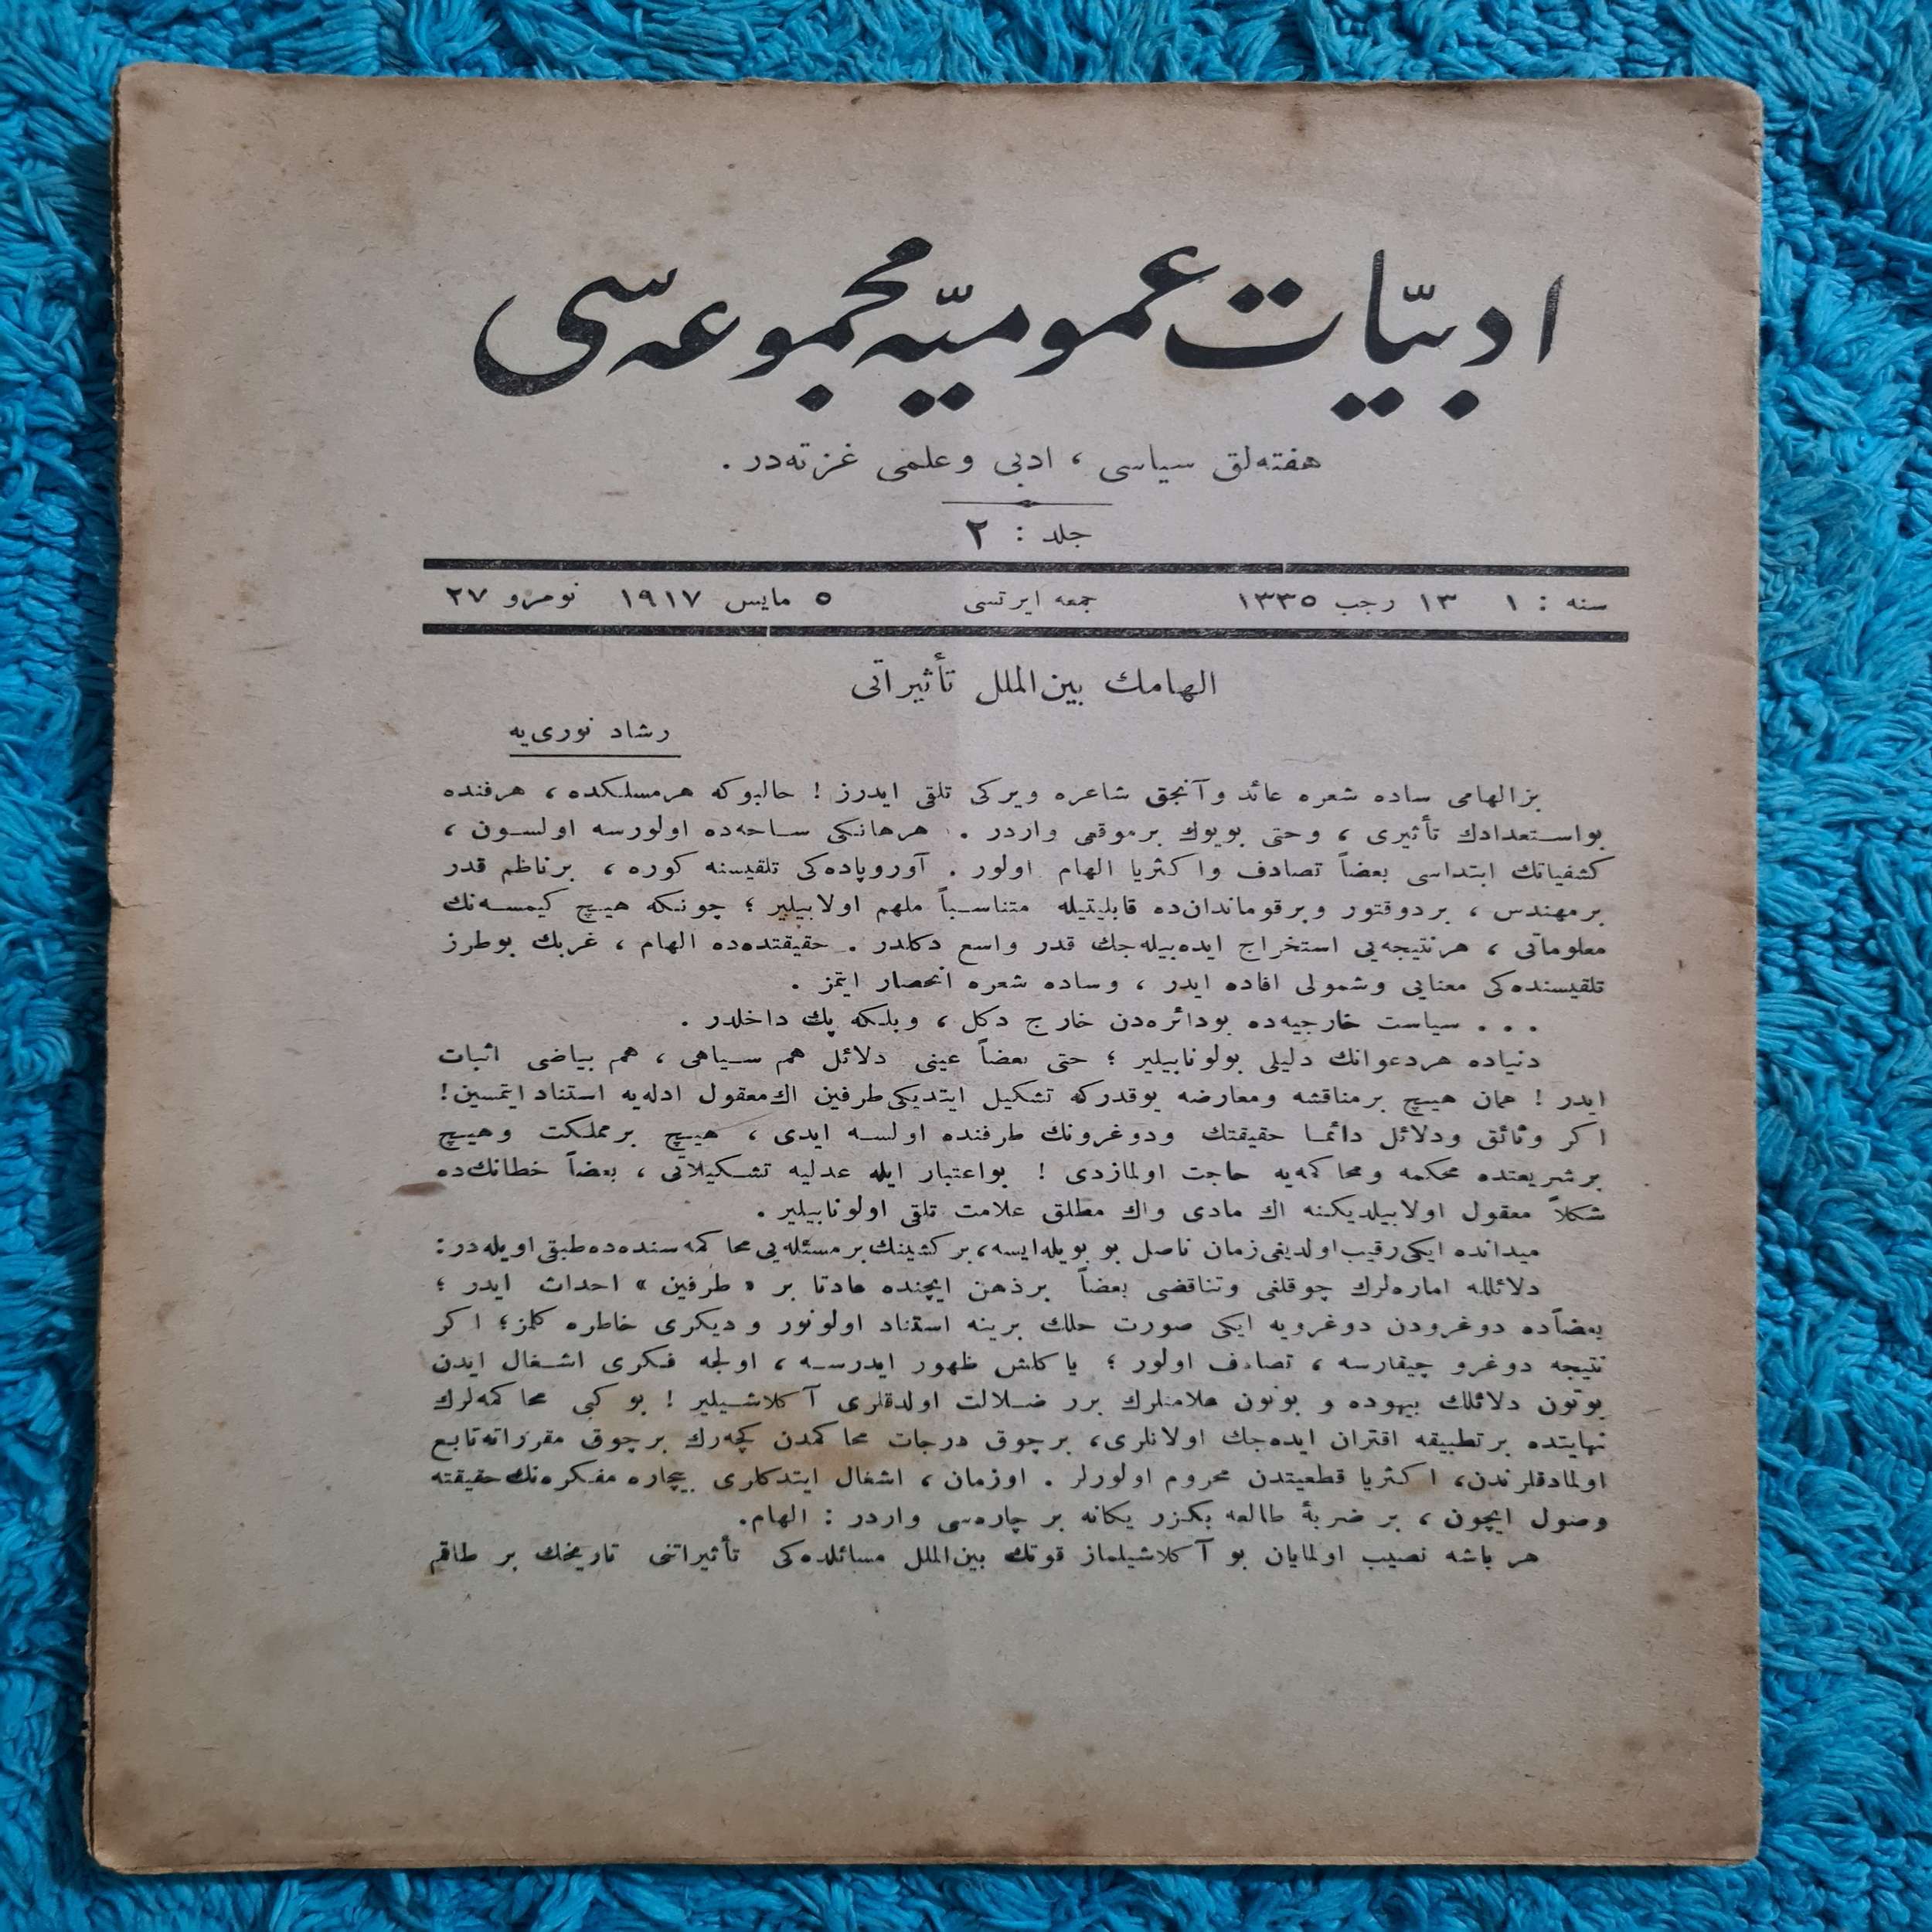 ادبیّات عمومیّه مجموعه‌سی
هفته‌لق سیاسی ، ادبی و علمی غزته‌در .
جلد : ٢
سنه : ١ ١٣ رجب ١٣٣٥ جمعه ایرتسی ٥ مایس ١٩١٧ نومرو ٢٧
الهامك بین‌الملل تأثیراتی
رشاد نوری‌یه
بز الهامی ساده شعره عائد و آنجق شاعره ویرکی تلقی ایدرز ! حالبوکه هرمسلکده ، هرفنده
بواستعدادك تأثیری ، وحتی بویوك برموقعی واردر . هرهانکی ساحه‌ده اولورسه اولسون ،
کشفیاتك ابتداسی بعضاً تصادف واکثریا الهام اولور . آوروپاده‌کی تلقیسنه کوره ، برناظم قدر
برمهندس ، بردوقتور وبرقوماندان‌ده قابلیتیله متناسباً ملهم اولابیلیر ؛ چونکه هیچ کیمسه‌نك
معلوماتی ، هرنتیجه‌یی استخراج ایده‌بیله‌جك قدر واسع دکلدر . حقیقتده‌ده الهام ، غربك بوطرز
تلقیسنده‌کی معنایی وشمولی افاده ایدر ، وساده شعره انحصار ایتمز .
. . . سیاست خارجیه‌ده بودائره‌دن خارج دکل ، وبلکه پك داخلدر .
دنیاده هردعوانك دلیلی بولونابیلیر ؛ حتی بعضاً عینی دلائل هم سیاهی ، هم بیاضی اثبات
ایدر ! همان هیچ برمناقشه ومعارضه یوقدرکه تشکیل ایتدیکی طرفین اك‌معقول ادله‌یه استناد ایتمسین !
اکر وثائق ودلائل دائما حقیقتك ودوغرونك طرفنده اولسه ایدی ، هیچ برمملکت وهیچ
برشریعتده محکمه ومحاکمه‌یه حاجت اولمازدی ! بواعتبار ایله عدلیه تشکیلاتی ، بعضاً خطانك‌ده
شکلاً معقول اولابیلدیکنه اك مادی واك مطلق علامت تلقی اولونابیلیر .
میدانده ایکی رقیب اولدیغی زمان ناصل بو بویله ایسه، برکشینك برمسئله‌یی محاکمه‌سنده‌ده طبقی اویله‌در :
دلائلله اماره‌لرك چوقلغی وتناقضی بعضاً برذهن ایچنده عادتا بر « طرفین » احداث ایدر ؛
بعضاًده دوغرودن دوغرویه ایکی صورت حلك برینه استناد اولونور و دیکری خاطره کلمز؛ اکر
نتیجه دوغرو چیقارسه ، تصادف اولور ؛ یاکلش ظهور ایدرسه ، اولجه فکری اشغال ایدن
بوتون دلائلك بیهوده و بوتون علامتلرك برر ضلالت اولدقلری آکلاشیلیر ! بو کبی محاکمه‌لرك
نهایتده برتطبیقه اقتران ایده‌جك اولانلری، برچوق درجات محاکمدن کچه‌رك برچوق مقرراته‌تابع
اولمادقلرندن، اکثریا قطعیتدن محروم اولورلر . اوزمان ، اشغال ایتدکلری بیچاره مفکره‌نك حقیقته
وصول ایچون ، بر ضربهٔ طالعه بکزر یکانه بر چاره‌سی واردر : الهام.
هر باشه نصیب اولمایان بو آکلاشیلماز قوتك بین‌الملل مسائلده‌کی تأثیراتنی تاریخك بر طاقم